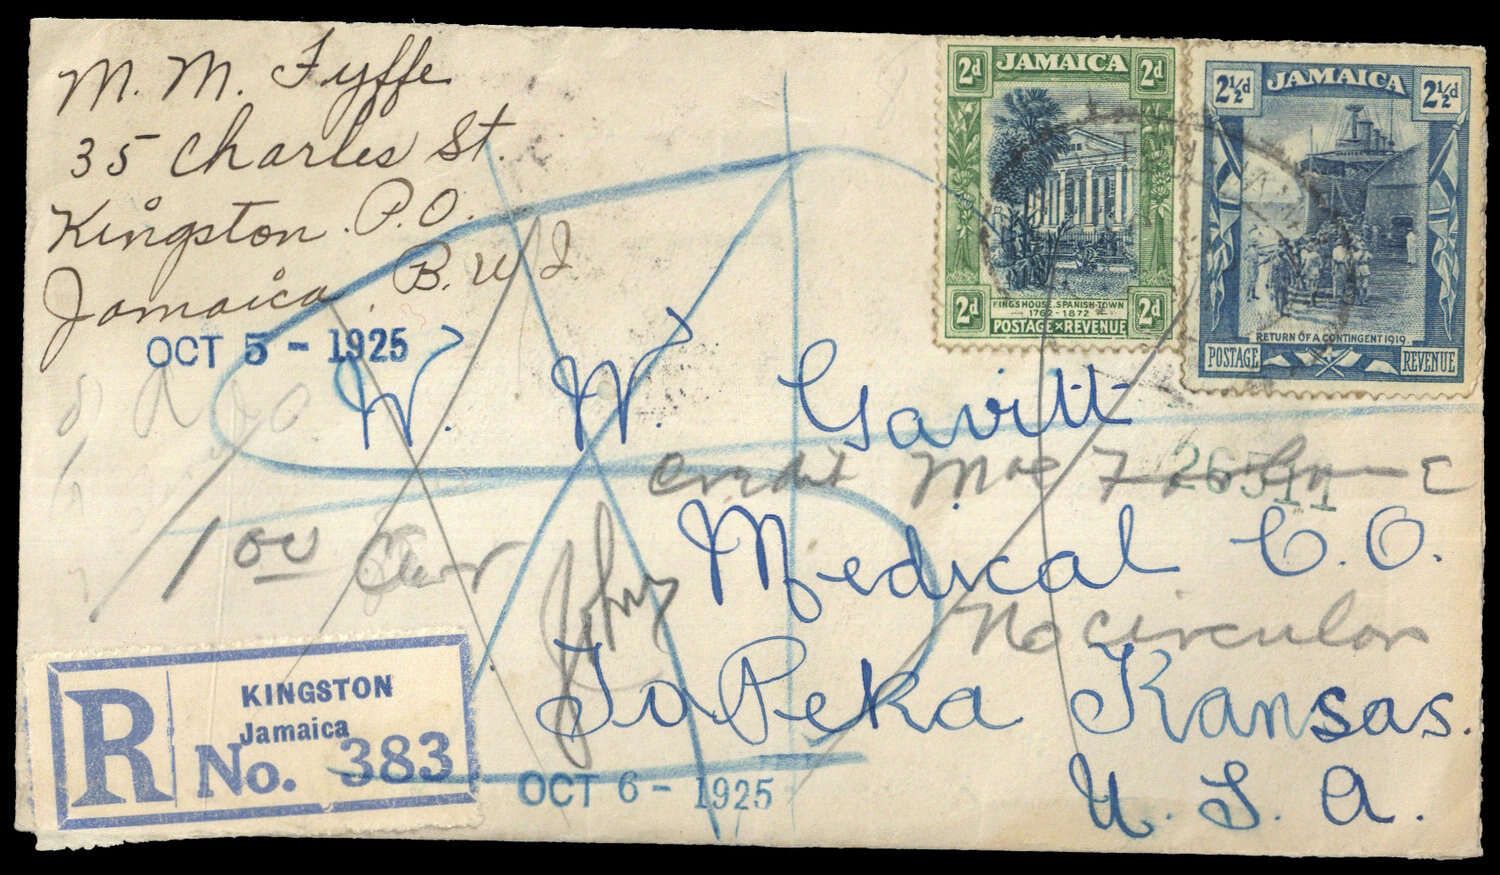 M. M. Fyffe
35 Charles St.
Kingston. P.O.
Jamaica. B.W.I
OCT 5 - 1925
2d JAMAICA 2d
KING'S HOUSE, SPANISH-TOWN
1762-1872
2d POSTAGE × REVENUE 2d
2½d JAMAICA 2½d
RETURN OF A CONTINGENT 1919
POSTAGE REVENUE
W. W. Gavitt
Credit
26511
Medical C.O.
1 00
No circular
ToPeKa Kansas.
U. S. A.
R
KINGSTON
Jamaica
No. 383
OCT 6 - 1925